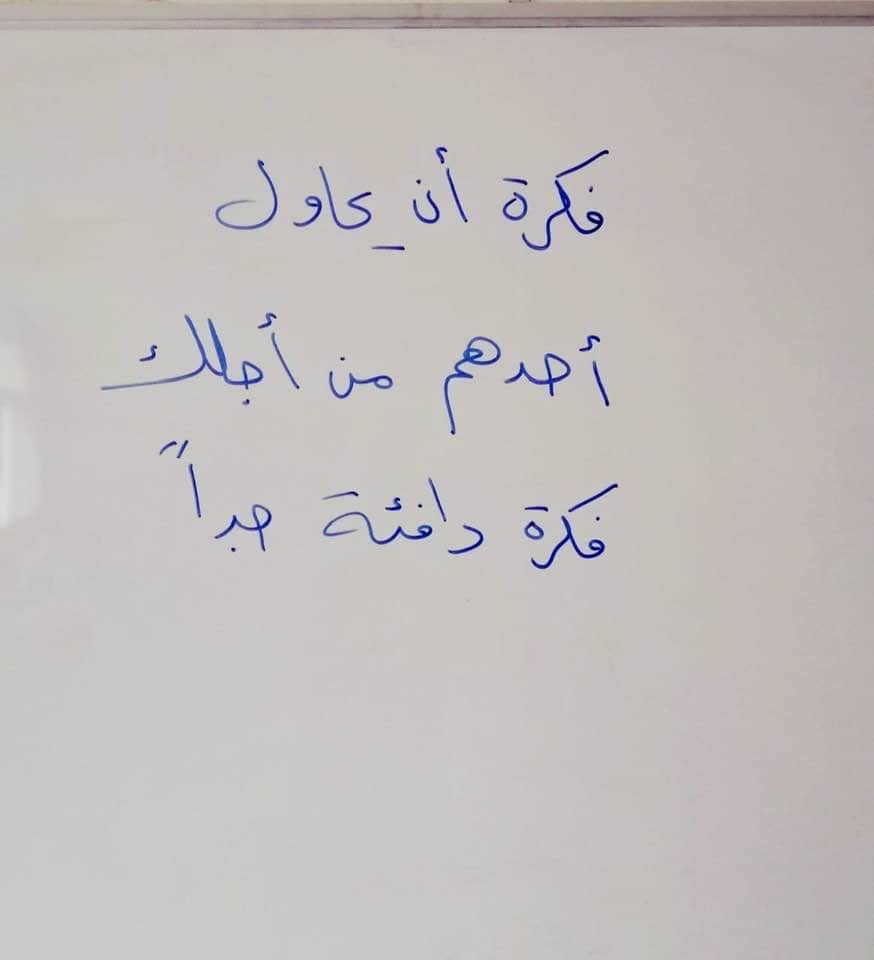 فكرة أن يحاول
أحدهم من أجلك
فكرة دافئة جداً